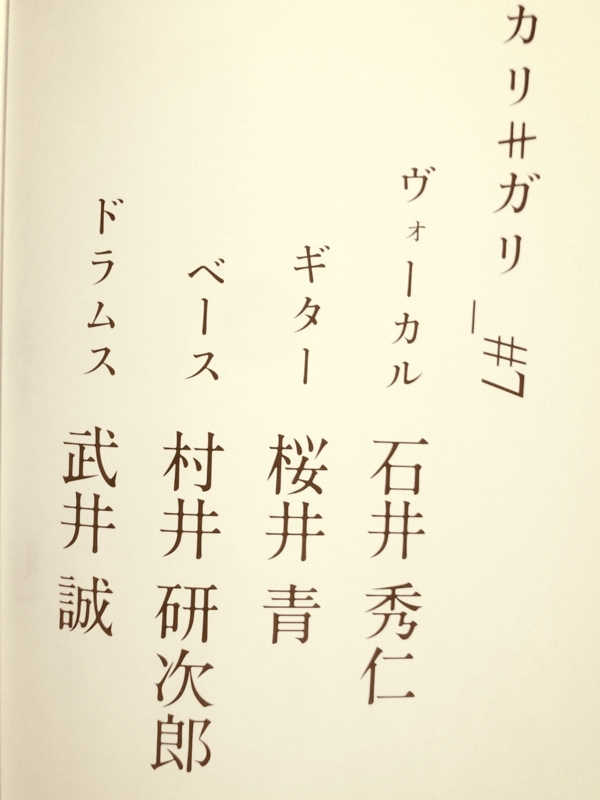 カリ#ガリ_#7
ヴォーカル 石井 秀仁
ギター 桜井 青
ベース 村井 研次郎
ドラムス 武井 誠